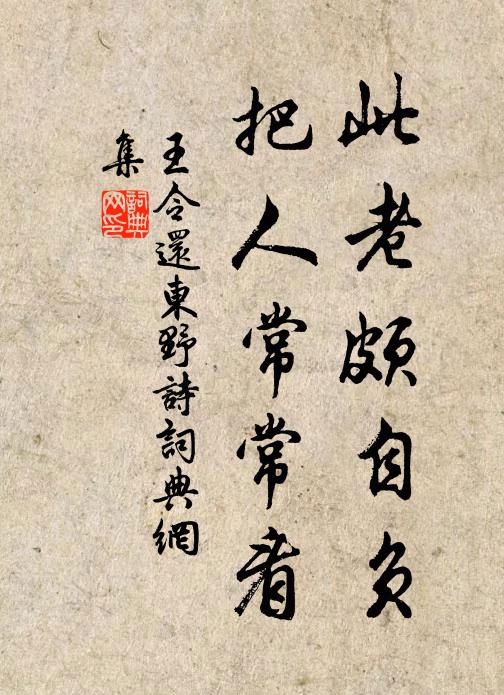 此老頗自負
把人常常看
王令還東野詩詞典網
集
詞典網印